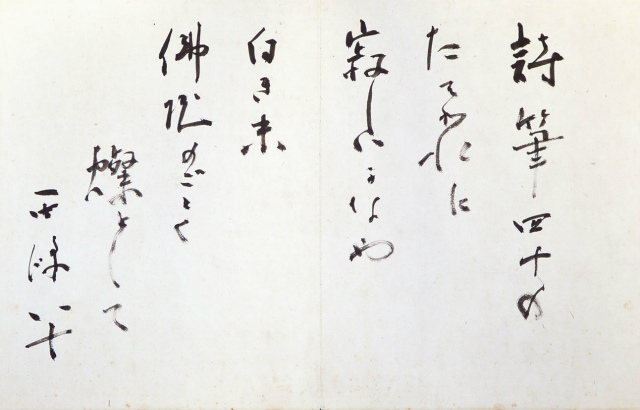 詩筆四十の
たそがれに
寂しいかなや
白き米
佛陀のごとく
燦として
西條八十